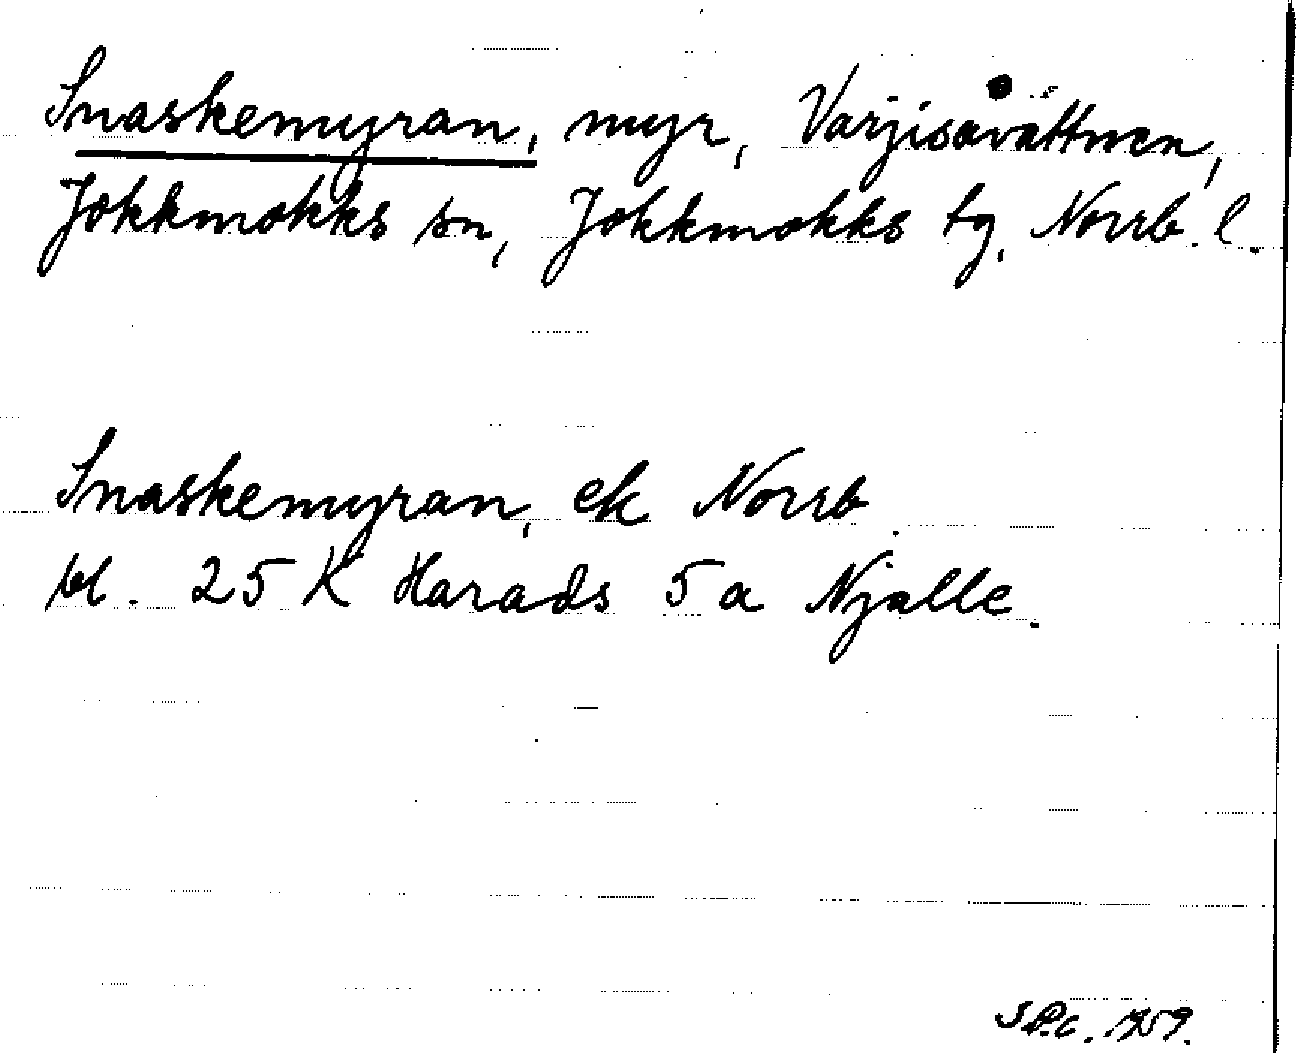 Snaskemyran, myr, Varjisåvattnen,
Jokkmokks sn, Jokkmokks tg, Norrb. l.
Snaskemyran, ek Norrb.
bl. 25 K Harads 5 a Njalle.
1959.